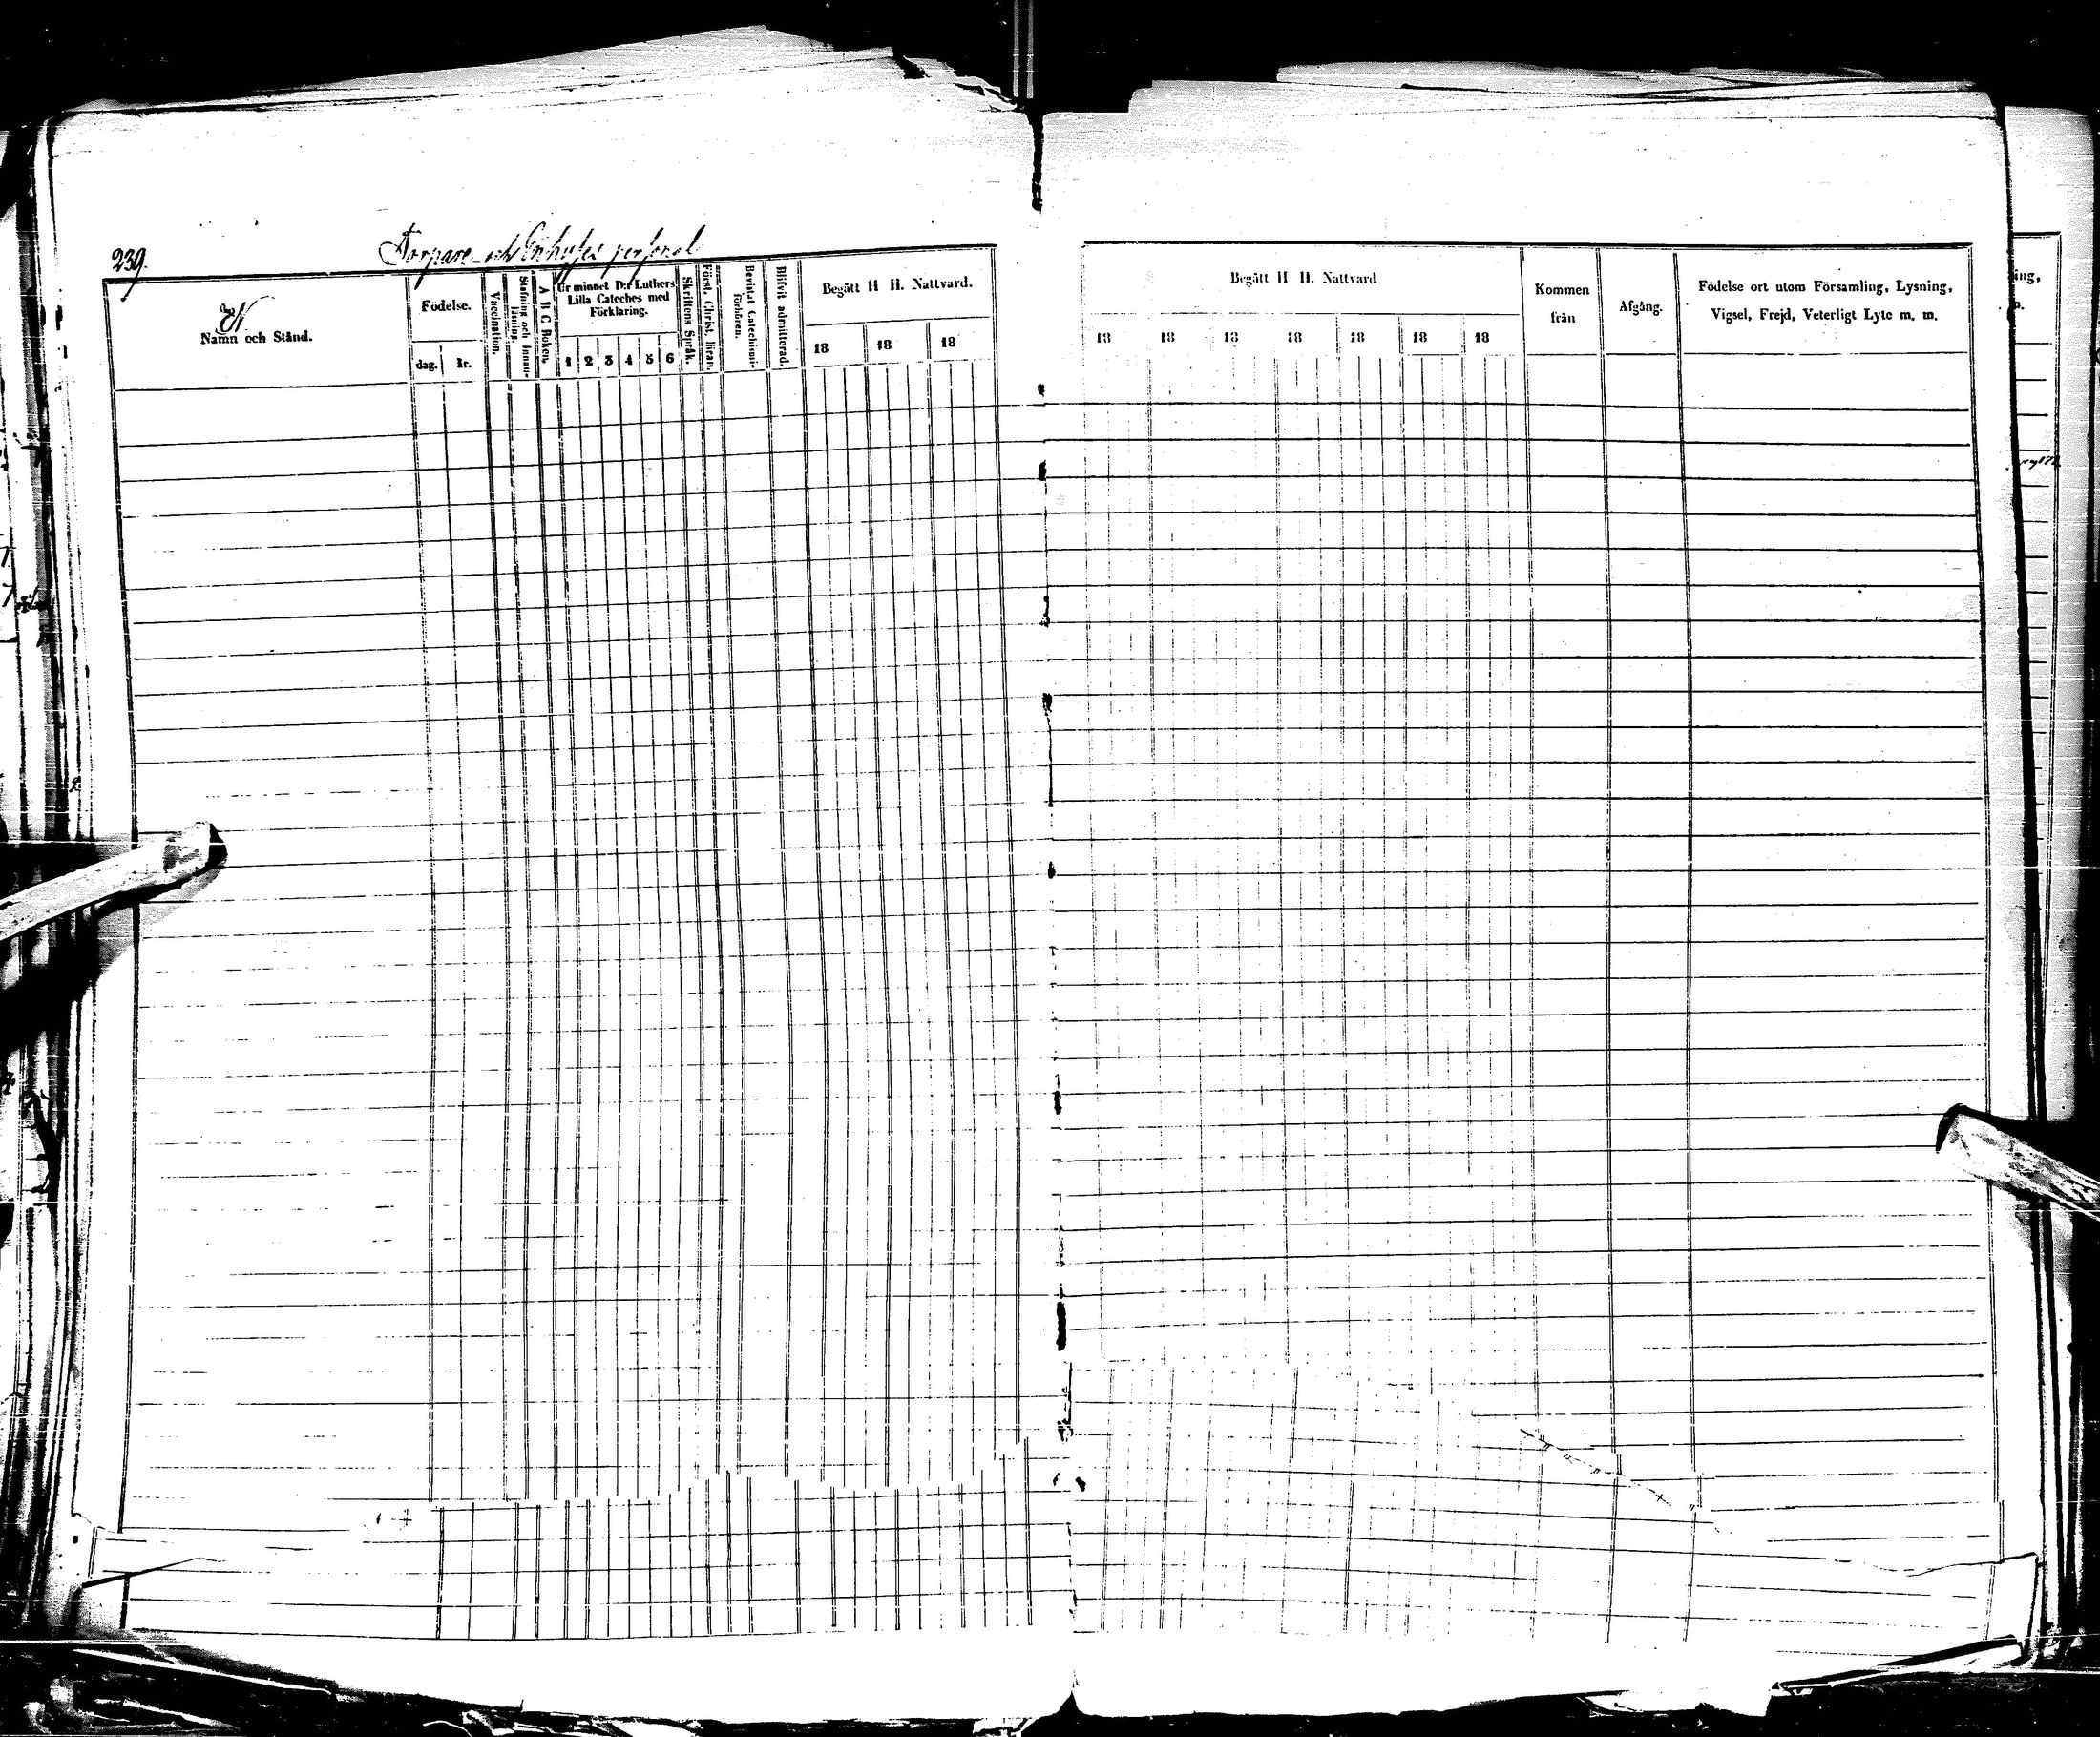 239.
Torpare- och Inhyses personal
N
Namn och Stånd.
Födelse.
dag.
år.
Vaccination.
Stafning och Innan-
läsning.
A B C Boken.
Ur minnet D:r Luthers
Lilla Cateches med
Förklaring.
1 2 3 4 5 6
Skriftens Språk.
Först. Christ. läran.
Bevistat Catechismi-
förhören.
Blifvit admitterad.
Begått H H. Nattvard.
18 18 18
Begått H H. Nattvard
18 18 18 18 18 18 18
Kommen
från
Afgång.
Födelse ort utom Församling, Lysning,
Vigsel, Frejd, Veterligt Lyte m. m.